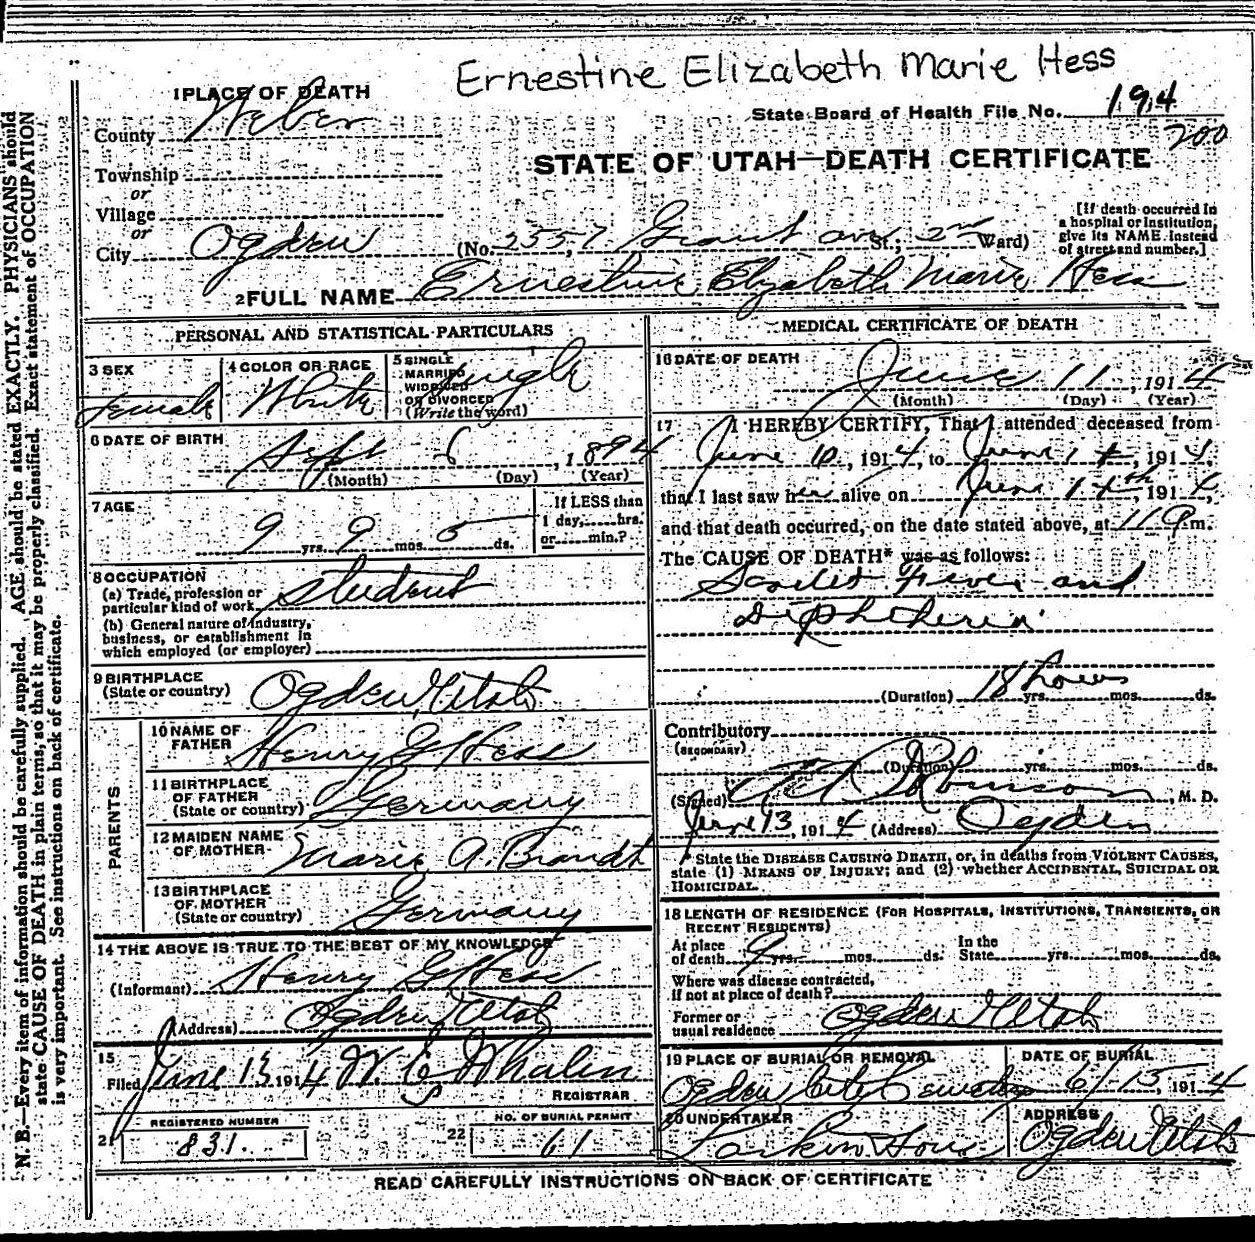 Ernestine Elizabeth Marie Hess
1 PLACE OF DEATH
State Board of Health File No. 194
200
County Weber
STATE OF UTAH—DEATH CERTIFICATE
Township
or
Village
or
City Ogden (No. 2557 Grant ave St.; 2nd Ward)
[If death occurred in
a hospital or institution,
give its NAME instead
of street and number.]
2 FULL NAME Ernestine Elizabeth Marie Hess
PERSONAL AND STATISTICAL PARTICULARS
3 SEX
female
4 COLOR OR RACE
White
5 SINGLE
MARRIED
WIDOWED
OR DIVORCED
(Write the word)
Single
6 DATE OF BIRTH
Sept 6, 1894
(Month) (Day) (Year)
7 AGE
9 yrs. 9 mos. 5 ds.
If LESS than
1 day, hrs.
or min.?
8 OCCUPATION
(a) Trade, profession or
particular kind of work student
(b) General nature of industry,
business, or establishment in
which employed (or employer)
9 BIRTHPLACE
(State or country) Ogden Utah
PARENTS
10 NAME OF
FATHER Henry G Hess
11 BIRTHPLACE
OF FATHER
(State or country) Germany
12 MAIDEN NAME
OF MOTHER Marie A. Brandt
13 BIRTHPLACE
OF MOTHER
(State or country) Germany
14 THE ABOVE IS TRUE TO THE BEST OF MY KNOWLEDGE
(Informant) Henry G Hess
(Address) Ogden Utah
15
Filed June 13 1914 W. C. Whalen
REGISTRAR
21 REGISTERED NUMBER
831.
22 NO. OF BURIAL PERMIT
61
MEDICAL CERTIFICATE OF DEATH
16 DATE OF DEATH
June 11, 1914
(Month) (Day) (Year)
17 I HEREBY CERTIFY, That I attended deceased from
June 10, 1914, to June 1, 1914,
that I last saw her alive on June, 1914,
and that death occurred, on the date stated above, at 11 P m.
The CAUSE OF DEATH* was as follows:
Scarlet Fever and
Diphtheria
(Duration) 18 hours yrs. mos. ds.
Contributory
(SECONDARY)
(Duration) yrs. mos. ds.
(Signed) Robinson, M. D.
June 13, 1914 (Address) Ogden
* State the DISEASE CAUSING DEATH, or, in deaths from VIOLENT CAUSES,
state (1) MEANS OF INJURY; and (2) whether ACCIDENTAL, SUICIDAL OR
HOMICIDAL.
18 LENGTH OF RESIDENCE (FOR HOSPITALS, INSTITUTIONS, TRANSIENTS, OR
RECENT RESIDENTS)
At place
of death 9 yrs. mos. ds. In the
State yrs. mos. ds.
Where was disease contracted,
if not at place of death?
Former or
usual residence Ogden Utah
19 PLACE OF BURIAL OR REMOVAL
Ogden City Cemetery
DATE OF BURIAL
6/15 1914
20 UNDERTAKER
Larkin Sons
ADDRESS
Ogden Utah
READ CAREFULLY INSTRUCTIONS ON BACK OF CERTIFICATE
N. B.—Every item of information should be carefully supplied. AGE should be stated EXACTLY. PHYSICIANS should
state CAUSE OF DEATH in plain terms, so that it may be properly classified. Exact statement of OCCUPATION
is very important. See instructions on back of certificate.